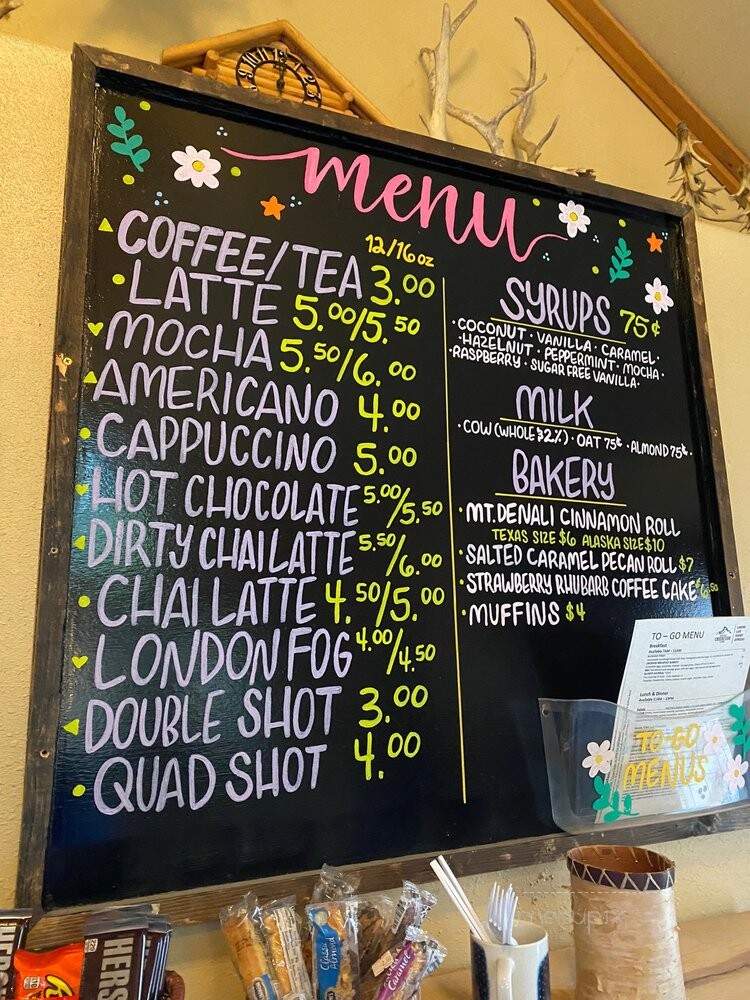 menu
12/16 oz
COFFEE/TEA 3.00
LATTE 5.00/5.50
MOCHA 5.50/6.00
AMERICANO 4.00
CAPPUCCINO 5.00
HOT CHOCOLATE 5.00/5.50
DIRTY CHAI LATTE 5.50/6.00
CHAI LATTE 4.50/5.00
LONDON FOG 4.00/4.50
DOUBLE SHOT 3.00
QUAD SHOT 4.00
SYRUPS 75¢
·COCONUT · VANILLA · CARAMEL·
·HAZELNUT · PEPPERMINT · MOCHA·
·RASPBERRY · SUGAR FREE VANILLA·
MILK
·COW (WHOLE & 2%) · OAT 75¢ · ALMOND 75¢·
BAKERY
·MT. DENALI CINNAMON ROLL
TEXAS SIZE $6 ALASKA SIZE $10
·SALTED CARAMEL PECAN ROLL $7
·STRAWBERRY RHUBARB COFFEE CAKE
·MUFFINS $4
TO-GO MENU
Breakfast
Lunch & Dinner
TO-GO
MENUS
HERS
Classic
Almond
Caramel